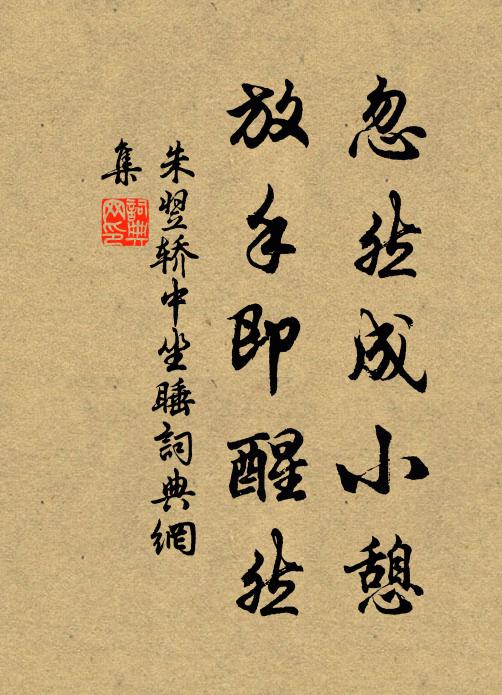 忽然成小憩
放手即醒然
朱翌轿中坐睡詞典網
集
詞典
网印